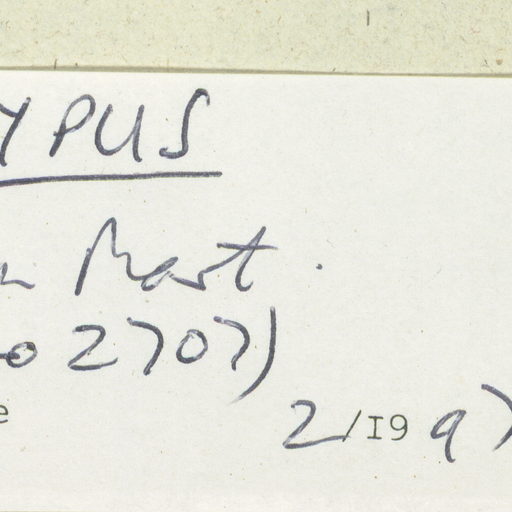 YPUS
Mart.
o 2707)
e 2/I997